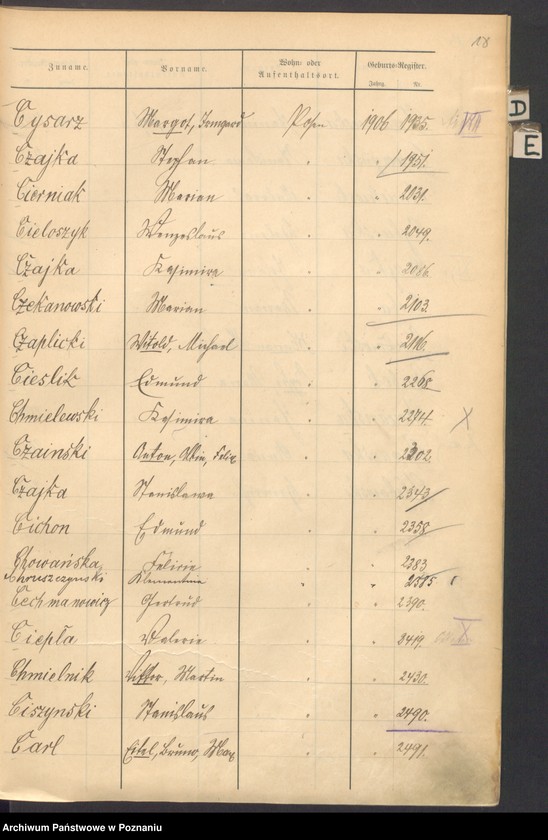 18
Zuname. Vorname. Wohn- oder Aufenthaltsort. Geburts-Register.
Jahrg. Nr.
Cysarz Margot, Irmgard Posen 1906 1935. VIII
Czajka Stephan " " 1951.
Cierniak Marian " " 2031.
Cieloszyk Wenzeslaus " " 2049.
Czajka Kasimira " " 2066.
Czekanowski Marian " " 2103.
Czaplicki Witold, Michael " " 2116.
Cieslik Edmund " " 2268.
Chmielewski Kasimira " " 2274. X
Czainski Anton, Felix " " 2302.
Czajka Stanislawa " " 2343
Cichon Edmund " " 2358
Chowańska Felicie " " 2383
Chruszczynski Klementine " " 2385
Cechmanowicz Gertrud " " 2390.
Ciepła Valerie " " 2419. X
Chmielnik Viktor, Martin " " 2430.
Ciszynski Stanislaus " " 2490.
Carl Eitel, Bruno, Max " " 2491.
D
E
Archiwum Państwowe w Poznaniu